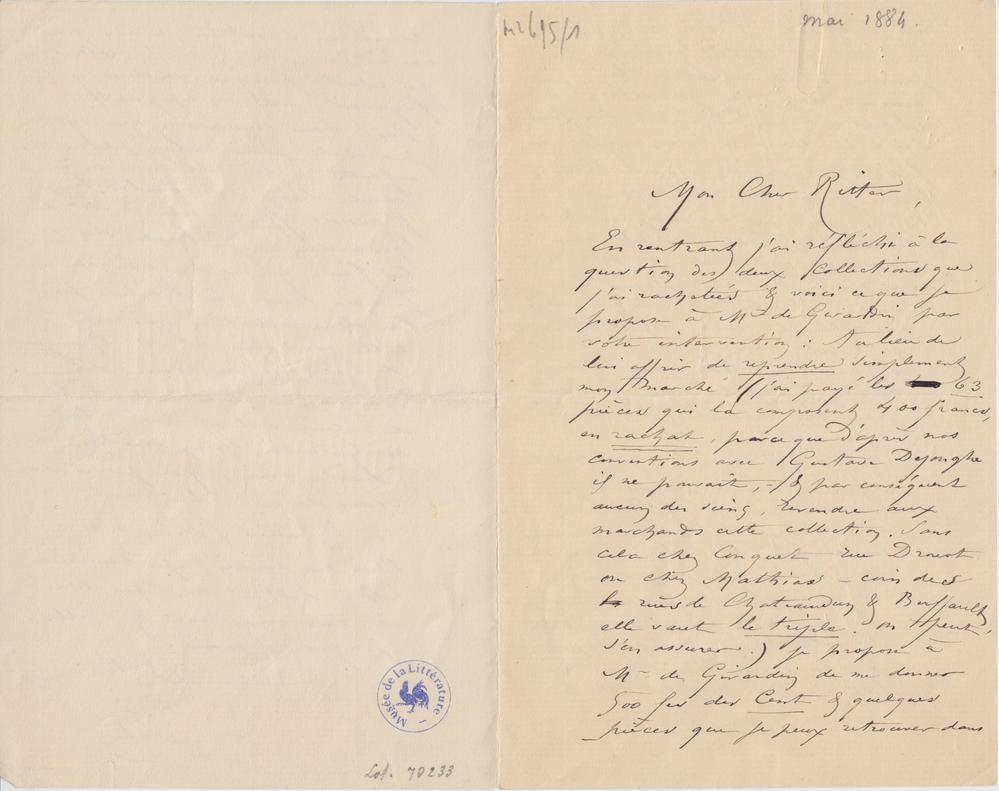 ML 2695/1
mai 1884.
Mon Cher Ritter,
En rentrant j'ai réfléchi à la
question des deux Collections que
j'ai rachetées & voici ce que je
propose à Mr de Girardin par
votre intervention : Au lieu de
lui offrir de reprendre simplement
mon marché (j'ai payé les 63
pièces qui la composent 400 francs,
en rachat, parce que d'après nos
conventions avec Gustave Dejonghe
il ne pouvait, - & par conséquent
aucun des siens, revendre aux
marchands cette collection. Sans
cela chez Conquet rue Drouot
ou chez Mathias - coin des
rues de Chateaudun & Buffault,
elle vaut le triple. on peut
s'en assurer.) je propose à
Mr de Girardin de me donner
500 frs des Cent & quelques
pièces que je peux retrouver dans
Musée de la Littérature
Lot. 70233